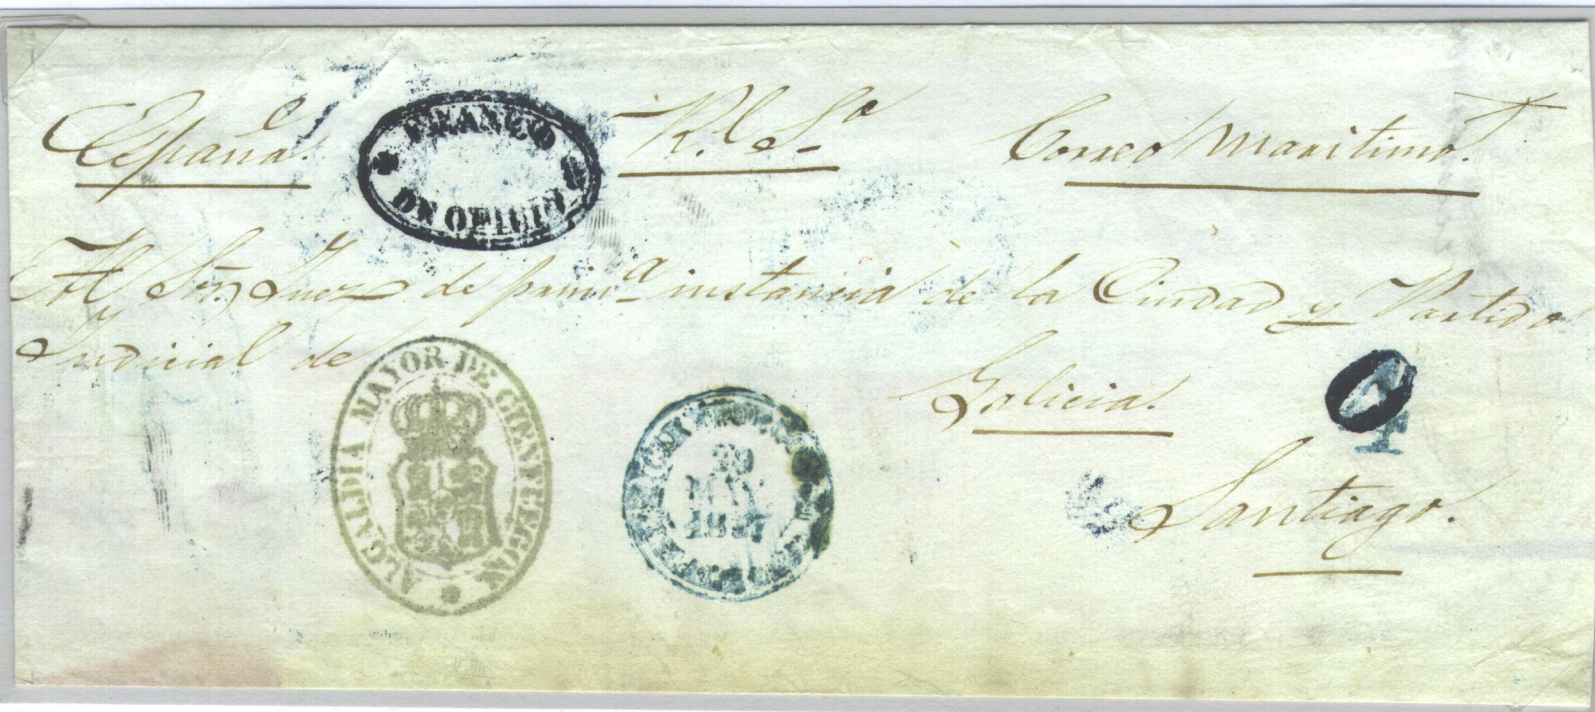 España. FRANCO DE OFICIO R.l S.o Correo Maritimo.
Al Sor. Juez de prim.a instancia de la Ciudad y Partido
Judicial de
ALCALDIA MAYOR DE CIENFUEGOS
Galicia.
Santiago.